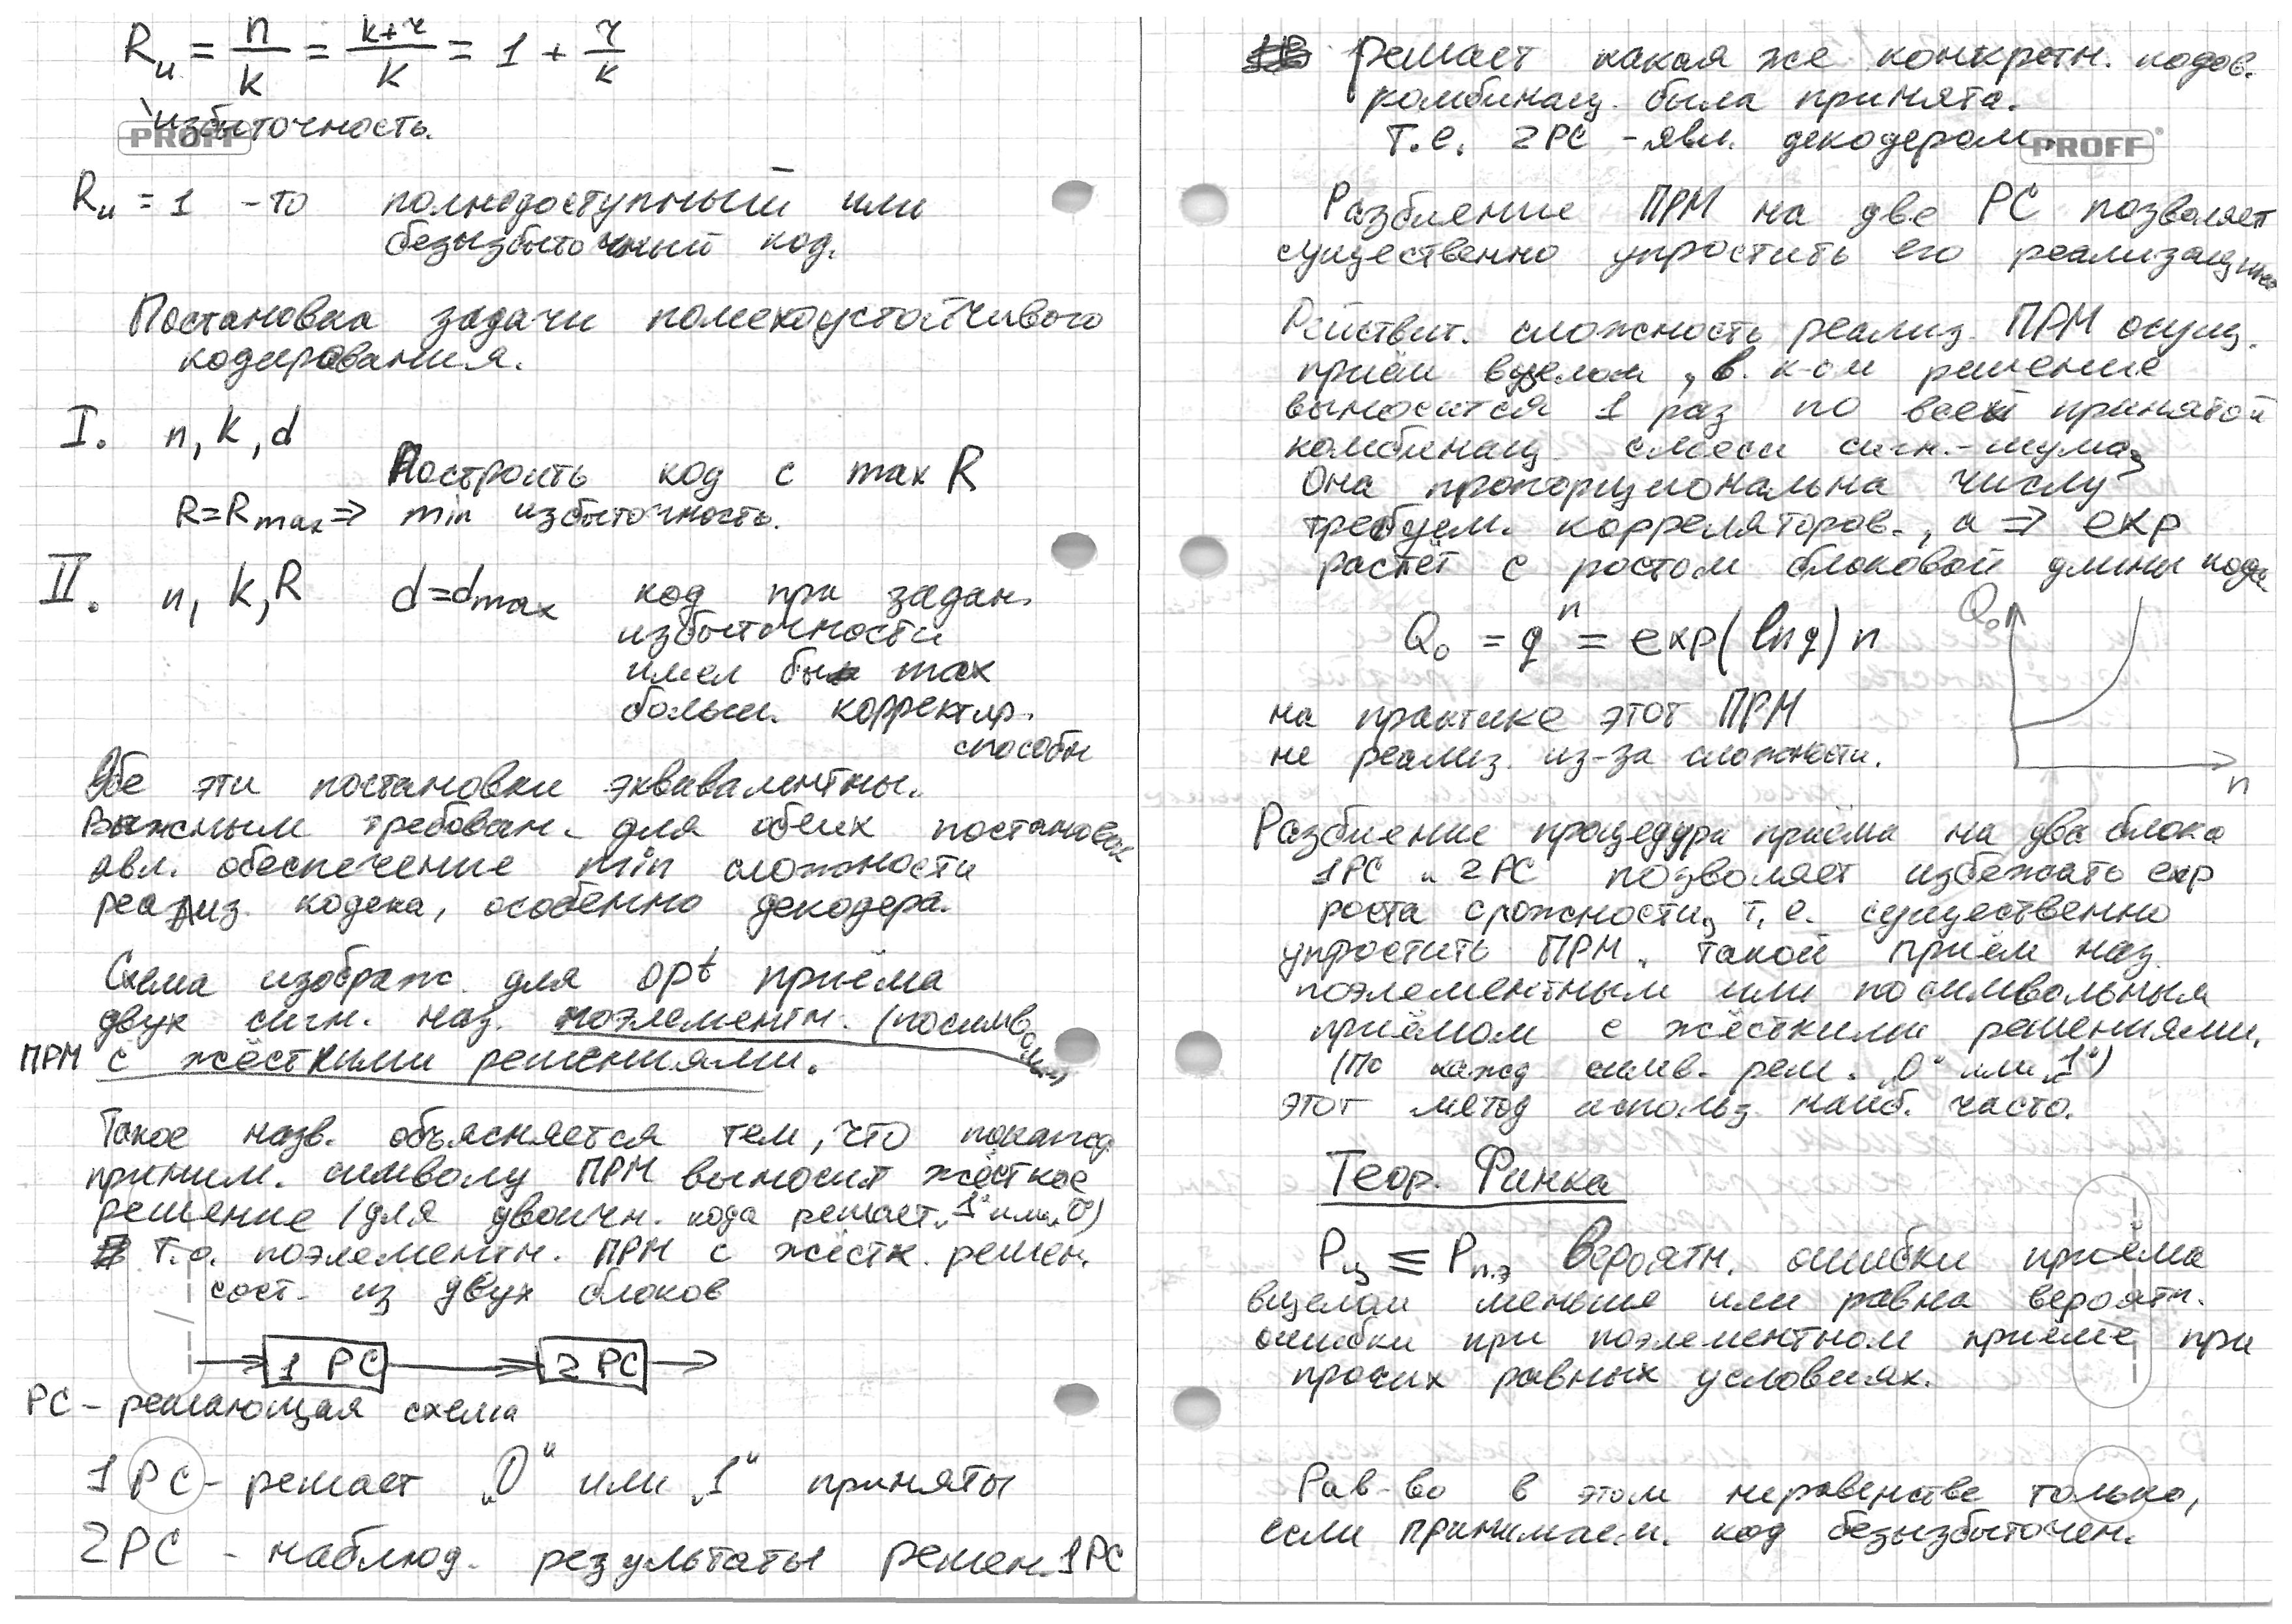 Rи = n/k = k+r/k = 1 + r/k
избыточность.
PROFF
Rи = 1 - то полнодоступный или
безызбыточный код.
Постановка задачи помехоустойчивого
кодирования.
I. n, k, d
Построить код с max R
R=Rmax ⇒ min избыточность.
II. n, k, R d=dmax код при задан.
избыточности
имел бы max
больш. корректир.
способн
Обе эти постановки эквивалентны.
Важным требован. для обеих постановок
явл. обеспечение min сложности
реализ. кодека, особенно декодера.
Схема изображ. для opt приёма
двух сигн. наз. поэлементн. (посимвольн)
ПРМ с жёсткими решениями.
Такое назв. объясняется тем, что покажд.
приним. символу ПРМ выносит жёсткое
решение (для двоичн. кода решает „1“ или „0“)
Т.о. поэлементн. ПРМ с жёстк. решен.
сост. из двух блоков
1 РС 2 РС
РС - решающая схема
1РС - решает „0“ или „1“ приняты
2РС - наблюд. результаты решен. 1РС
решает какая же конкретн. кодов.
комбинац. была принята.
Т.е. 2РС - явл. декодером.
PROFF
Разбиение ПРМ на две РС позволяет
существенно упростить его реализацию
Действит. сложность реализ. ПРМ осущ.
приём вцелом, в к-ом решение
выносится 1 раз по всей принятой
комбинац. смеси сигн.-шума,
Она пропорциональна числу
требуем. корреляторов., а ⇒ exp
растёт с ростом блоковой длины кода
Q₀ = qⁿ = exp(ln q) n
Q₀
n
на практике этот ПРМ
не реализ. из-за сложности.
Разбиение процедура приёма на два блока
1РС и 2РС позволяет избежать exp
роста сложности, т.е. существенно
упростить ПРМ. такой приём наз.
поэлементным или посимвольным
приёмом с жёсткими решениями.
(По кажд симв. реш. „0“ или „1“)
этот метод использ. наиб. часто.
Теор. Финка
Рц ≤ Рп.э Вероятн. ошибки приёма
вцелом меньше или равна вероятн.
ошибки при поэлементном приёме при
прочих равных условиях.
Рав-во в этом неравенстве только,
если принимаем. код безызбыточен.